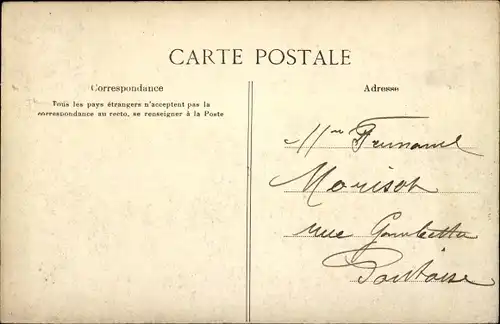 CARTE POSTALE
Correspondance
Tous les pays étrangers n'acceptent pas la
correspondance au recto, se renseigner à la Poste
Adresse
Morisot
rue Gambetta
Pontoise